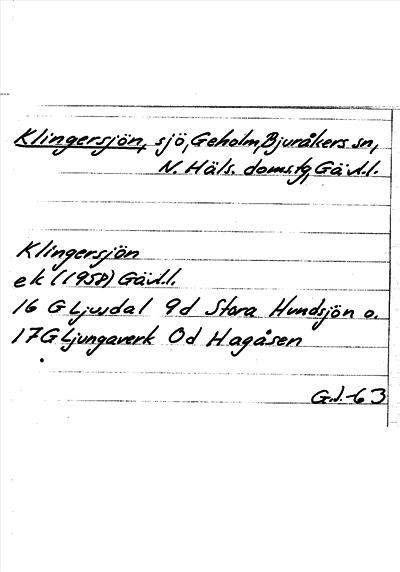 Klingersjön, sjö, Geholm, Bjuråkers sn,
N. Häls. doms.tg, Gävl.l.
Klingersjön
ek (1958) Gävl.l.
16 G Ljusdal 9d Stora Hundsjön o.
17G Ljungaverk 0d Hagåsen
G.J.-63